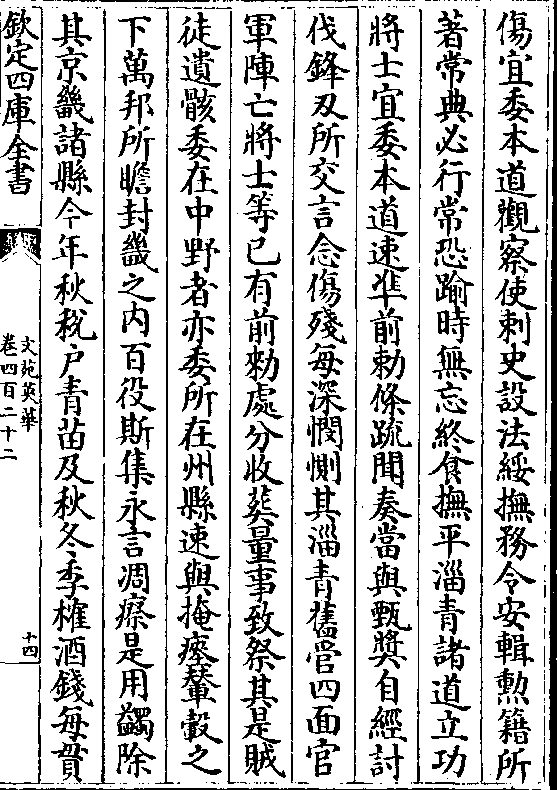 傷宜委本道觀察使刺史設法綏撫務令安輯勲籍所
著常典必行常恐踰時無忘終食撫平淄青諸道立功
將士宜委本道速準前勅條疏聞奏當與甄奬自經討
伐鋒刃所交言念傷殘每深憫惻其淄青舊管四面官
軍陣亡將士等已有前勅處分收葬量事致祭其是賊
徒遺骸委在中野者亦委所在州縣速與掩瘞輦轂之
下萬邦所瞻封畿之内百役斯集永言凋瘵是用蠲除
其京畿諸縣今年秋税户青苗及秋冬季榷酒錢每貫
欽定四庫全書
文苑英華
卷四百二十二
十四